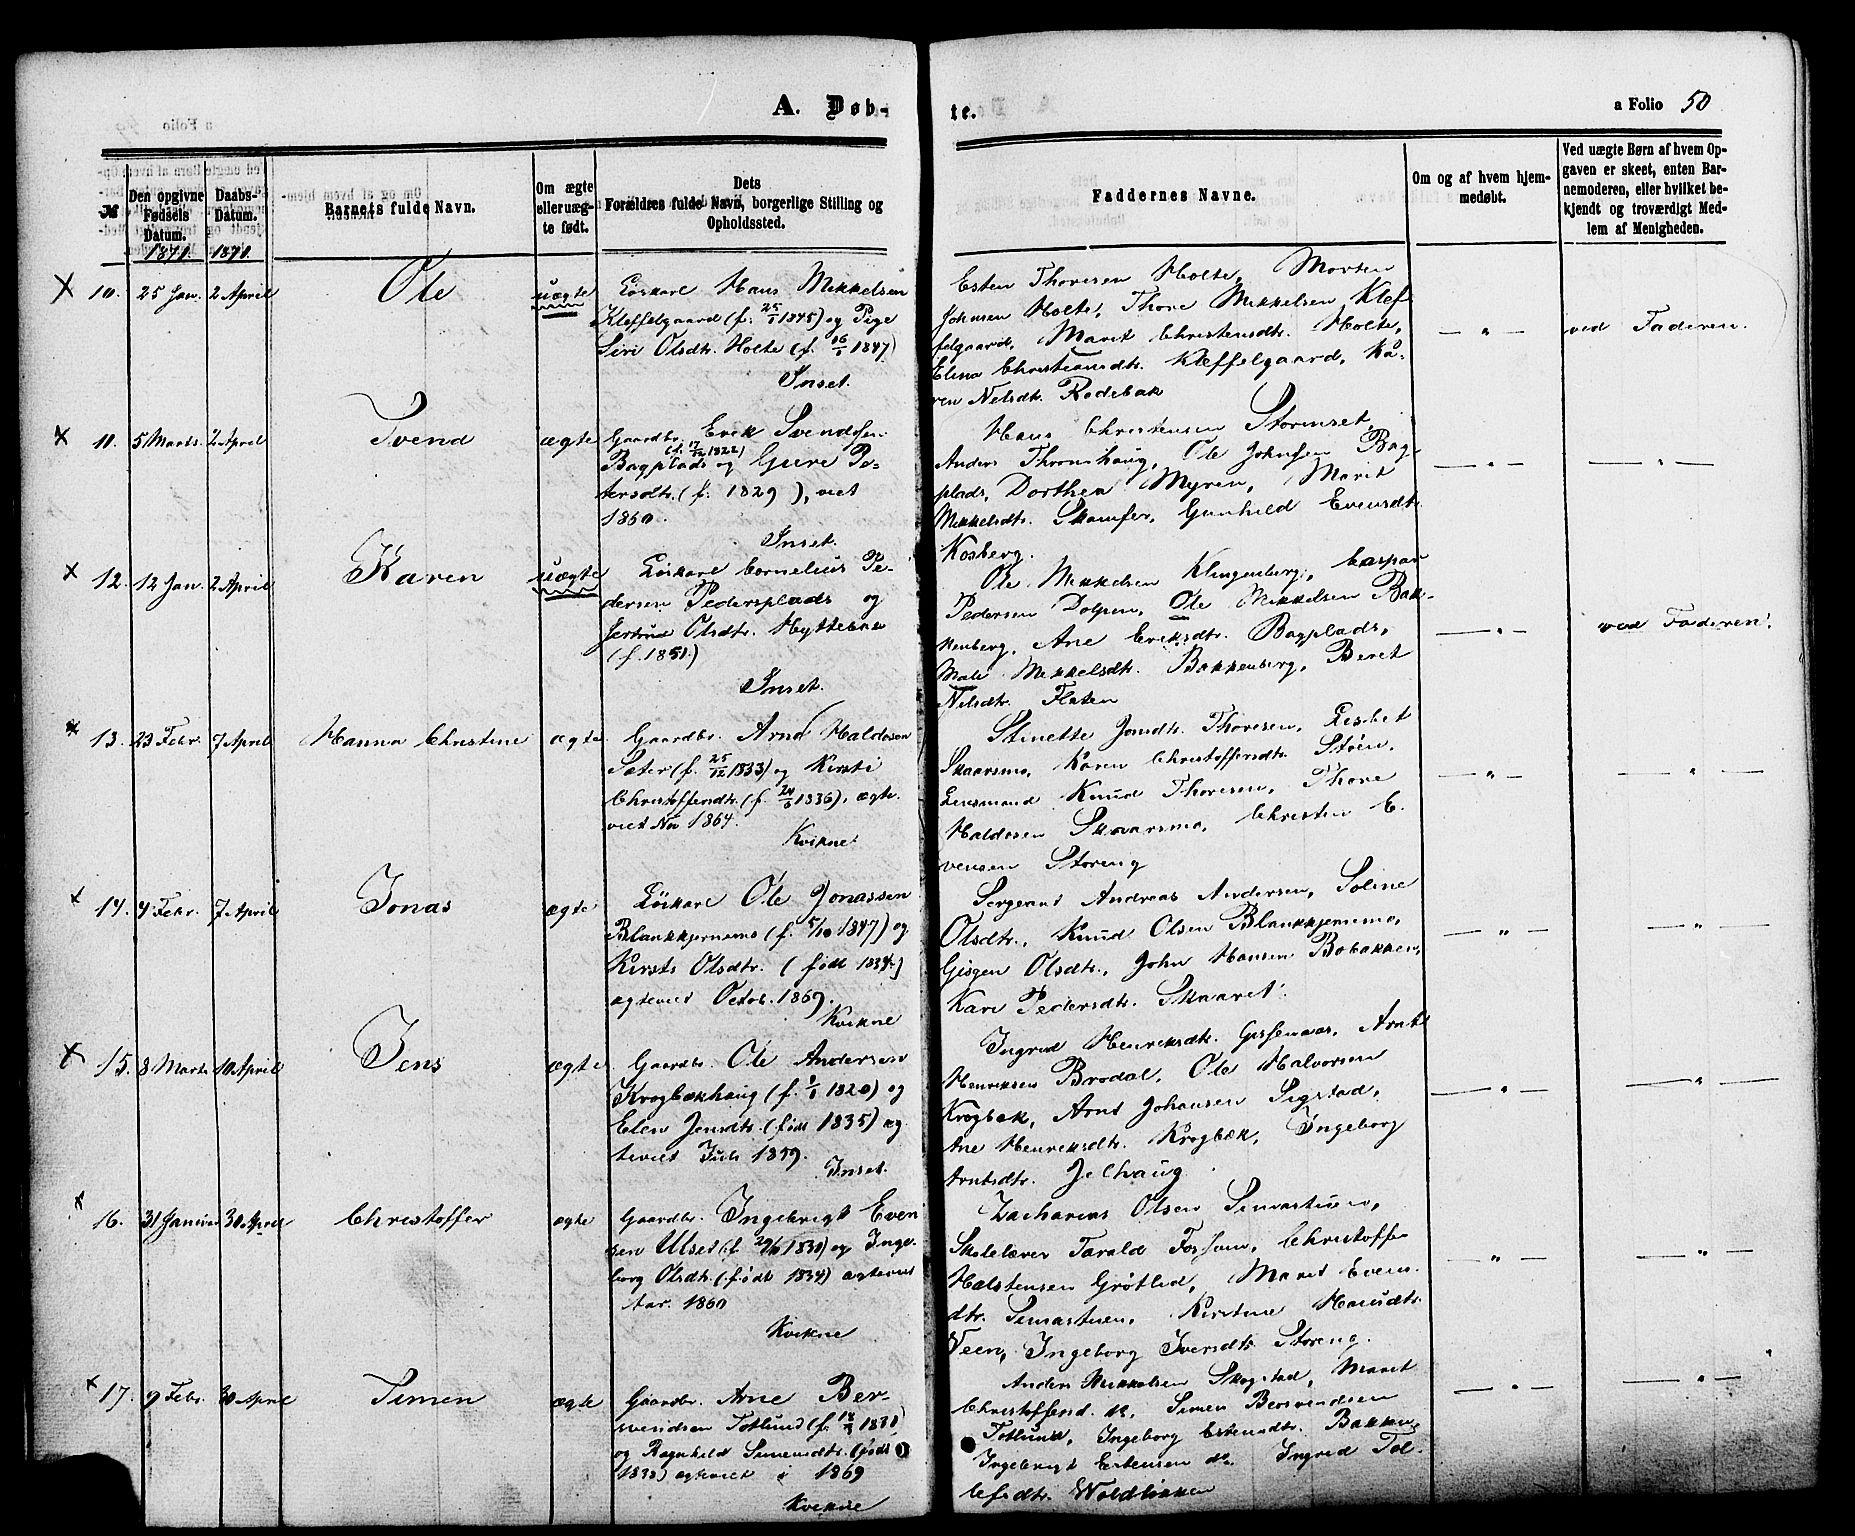 A. Døb-
te.
a Folio 50
№
Den opgivne Fødsels Datum.
1871.
Daabs-Datum.
1871.
Barnets fulde Navn.
Om ægte eller uæg-te født.
Dets
Forældres fulde Navn, borgerlige Stilling og Opholdssted.
Faddernes Navne.
Om og af hvem hjem-medøbt.
Ved uægte Børn af hvem Op-
gaven er skeet, enten Bar-
nemoderen, eller hvilket be-
kjendt og troværdigt Med-
lem af Menigheden.
10. 25 Jan. 2 April Ole uægte
Løskarl Hans Mikkelsen
Kleffelgaard (f. 25/1 1845) og Pige
Siri Olsdtr. Holte (f. 16/1 1847)
Inset.
Esten Thoresen Holte, Morten
Johnsen Holte, Thore Mikkelsen Klef
felgaard, Marit Christensdtr. Holte,
Elina Christiansdtr. Kleffelgaard, Ka-
ren Nelsdtr. Rodebak
— " — ved Faderen.
11. 5 Marts. 2 April Svend ægte
Gaardbr. Erik Svendsen
(f. 17/12 1822)
Bagplads og Guri Pe-
tersdtr. (f. 1829), viet
1860.
Inset.
Hans Christensen Storinset,
Anders Thronshaug, Ole Johnsen Bag-
plads, Dorthea Myren, Marit
Mikkelsdtr. Skamfer, Gunhild Evensdtr.
Kosberg.
— " — — " —
12. 12 Jan. 2 April Karen uægte
Løskarl Cornelius Pe-
dersen Pedersplads og
Jertrud Olsdtr. Hytteene
(f. 1851.)
Inset.
Ole Mikkelsen Klingenberg, Caspar
Pedersen Dolpen, Ole Mikkelsen Bak-
kenberg, Ane Eriksdtr. Bagplads,
Male Mikkelsdtr. Bakkenberg, Beret
Nilsdtr. Flaten
— " — ved Faderen.
13. 23 Febr. 7 April Hanna Christine ægte
Gaardbr. Arnd Haldosen
Sæter (f. 25/12 1833) og Kirsti
Christoffersdtr. (f. 24/6 1836), ægte-
viet Nov 1864.
Kvikne.
Stinette Jonsdtr. Thoresen, Lisbet
Skaarsmo, Karen Christoffersdtr. Støen,
Lensmand Knud Thoresen, Thore
Haldosen Skaarsmo, Christen E-
vensen Storeng
— " — — " —
14. 4 Febr. 7 April Jonas ægte
Løskarl Ole Jonassen
Blankkjernmo (f. 5/10 1847) og
Kirsti Olsdtr. (født 1834)
ægteviet Octob. 1869.
Kvikne
Sergeant Andreas Andersen, Soline
Olsdtr., Knud Olsen Blankkjernmo,
Gisgen Olsdtr., John Hansen Bobakken,
Kari Pedersdtr. Skaaret.
— " — — " —
15. 8 Marts 10 April Jens ægte
Gaardbr. Ole Andersen
Krogbækhaug (f. 1820) og
Elen Jensdtr. (født 1835) æg-
teviet Juli 1859.
Inset.
Ingrid Henriksdtr. Gissenaas, Arnt
Henriksen Brodal, Ole Halvorsen
Krogbak, Arnt Johansen Sigstad,
Ane Henriksdtr. Krogbæk, Ingeborg
Arntsdtr. Jelhaug
— " — — " —
16. 31 Januar 30 April Christoffer ægte
Gaardbr. Ingebrigt Even
sen Ulset (f. 1830) og Inge-
borg Olsdtr. (født 1834) ægteviet
1860
Kvikne
Zacharias Olsen Simastuen,
Skolelærer Tarald Fossum, Christoffer
Halstensen Grøtlid, Marit Evens-
dtr. Simastuen, Kirstine Hansdtr.
Veen, Ingeborg Iversdtr. Storeng.
— " — — " —
17. 9 Febr. 30 April Simen ægte
Gaardbr. Arne Ber-
svendsen Totlund (f. 1838)
og Ragnhild Simensdtr. (født
1838) ægteviet i 1869
Kvikne
Anders Mikkelsen Skogstad, Marit
Christoffersd. do, Simen Bersvendsen
Totlund, Ingeborg Estensdtr. Bakken,
Ingebrigt Estensen do, Ingrid Tol-
lefsdtr. Woldbakken
— " — — " —